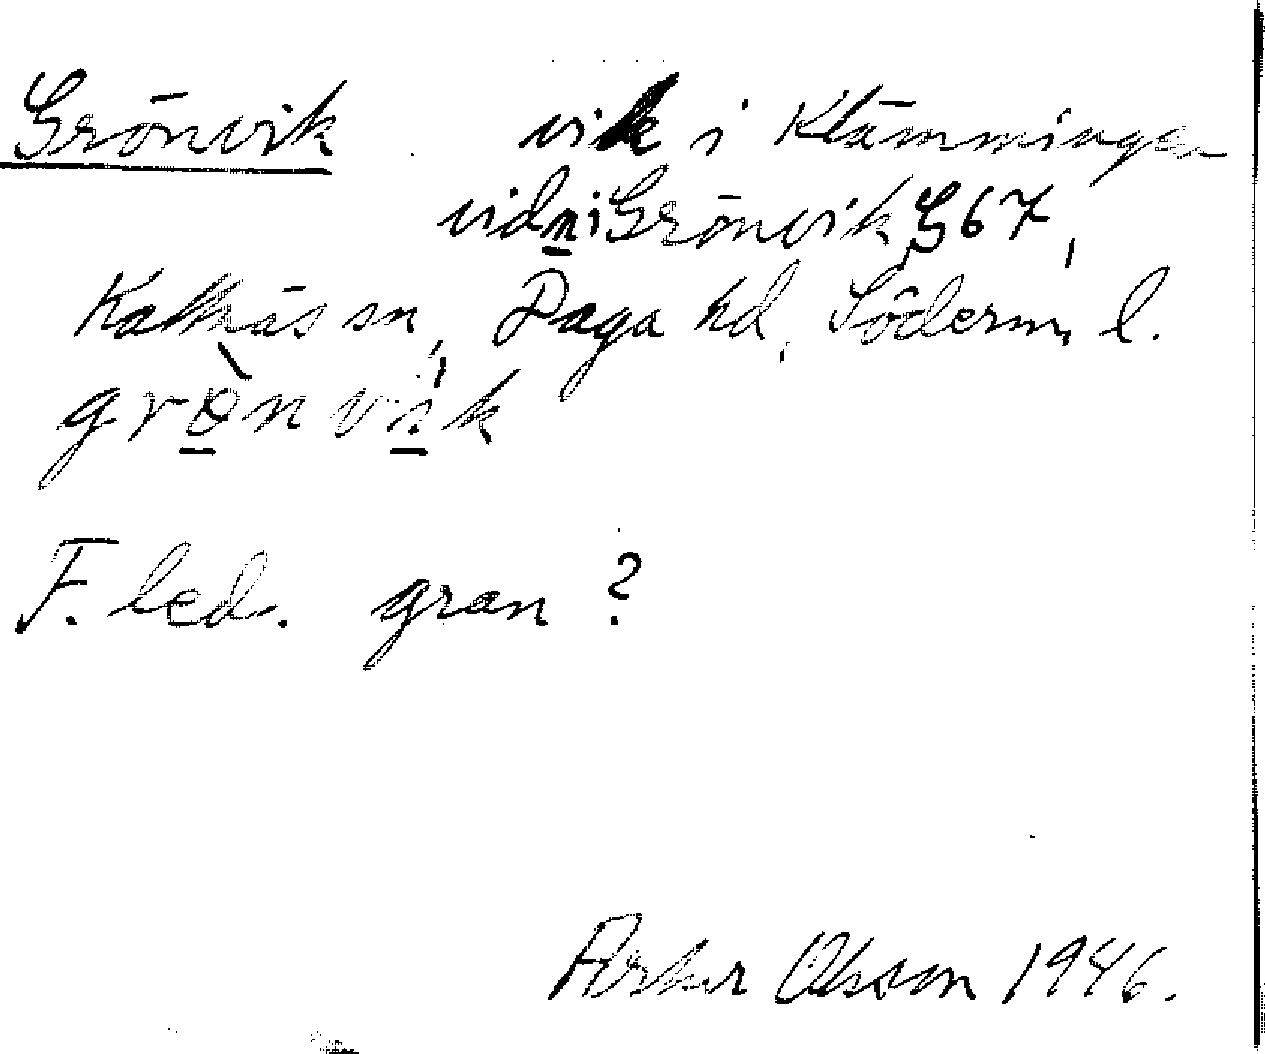 Grönvik vik i Klämmingen
vid ni Grönvik G 67,
Kattnäs sn, Daga hd, Söderm. l.
grònvík
F. led. gran?
Olsson 1946.